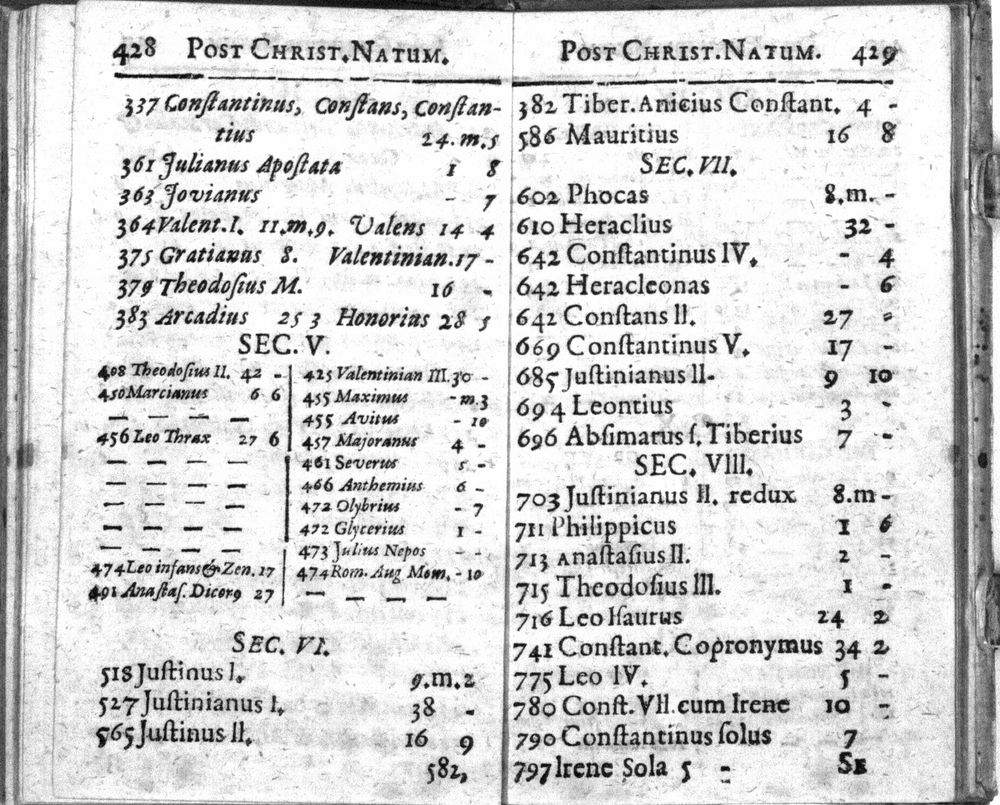 428 POST CHRIST.NATUM.
337 Conſtantinus, Conſtans, Conſtan-
tius 24.m.5
361 Julianus Apoſtata 1 8
363 Jovianus - 7
364 Valent.I. 11.m.9. Valens 14 4
375 Gratianus 8. Valentinian.17 -
379 Theodoſius M. 16 -
383 Arcadius 25 3 Honorius 28 5
SEC. V.
408 Theodoſius II. 42 -
450 Marcianus 6 6
— — — —
456 Leo Thrax 27 6
— — — —
— — — —
— — — —
— — — —
— — — —
474 Leo infans & Zen. 17
491 Anaſtaſ. Dicor9 27
425 Valentinian III.30 -
455 Maximus - m.3
455 Avitus - 10
457 Majoranus 4 -
461 Severus 5 -
466 Anthemius 6 -
472 Olybrius - 7
472 Glycerius 1 -
473 Julius Nepos - -
474 Rom. Aug Mom. - 10
— — — —
SEC. VI.
518 Juſtinus I. 9.m.2
527 Juſtinianus I. 38 -
565 Juſtinus II. 16 9
582,
POST CHRIST.NATUM. 429
382 Tiber.Anicius Conſtant. 4 -
586 Mauritius 16 8
SEC. VII.
602 Phocas 8.m. -
610 Heraclius 32 -
642 Conſtantinus IV. - 4
642 Heracleonas - 6
642 Conſtans II. 27 -
669 Conſtantinus V. 17 -
685 Juſtinianus II- 9 10
694 Leontius 3 -
696 Abſimarus ſ. Tiberius 7 -
SEC. VIII.
703 Juſtinianus II. redux 8.m -
711 Philippicus 1 6
713 Anaſtaſius II. 2 -
715 Theodoſius III. 1 -
716 Leo Iſaurus 24 2
741 Conſtant. Copronymus 34 2
775 Leo IV. 5 -
780 Conſt. VII. cum Irene 10 -
790 Conſtantinus ſolus 7
797 Irene Sola 5 - SE